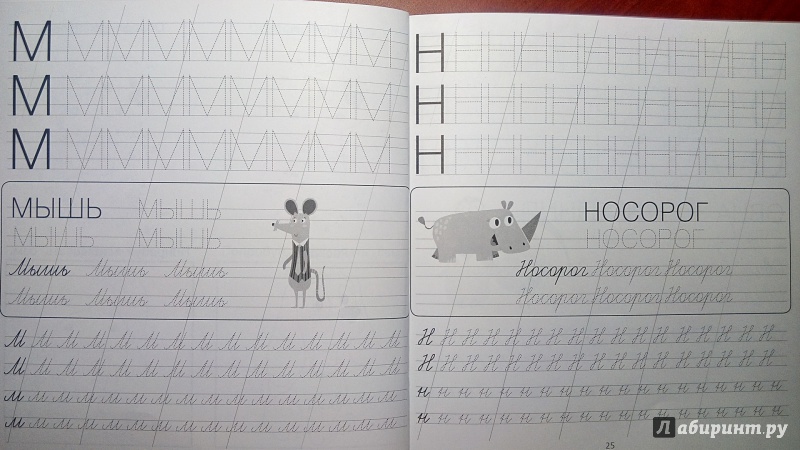 М М М М М М М М М
М М М М М М М М М
М М М М М М М М М
МЫШЬ МЫШЬ
МЫШЬ МЫШЬ
Мышь Мышь Мышь
Мышь Мышь Мышь
М М М М М М М М М М М М М М М М
М М М М М М М М М М М М М М М М
м м м м м м м м м м м м м м м м
м м м м м м м м м м м м м м м м
Н Н Н Н Н Н Н Н
Н Н Н Н Н Н Н Н
Н Н Н Н Н Н Н Н
НОСОРОГ
НОСОРОГ
Носорог Носорог Носорог
Носорог Носорог Носорог
Н Н Н Н Н Н Н Н Н Н Н Н Н Н Н Н
Н Н Н Н Н Н Н Н Н Н Н Н Н Н Н Н
н н н н н н н н н н н н н н н н н н
н н н н н н н н н н н н н н н н н н
25
Лабиринт.ру